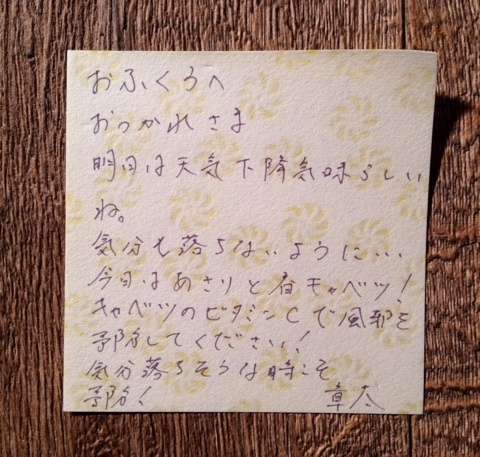 おふくろへ
おつかれさま
明日は天気下降気味らしい
ね。
気分も落ちないように...
今日はあさりと春キャベツ!
キャベツのビタミンCで風邪を
予防してください!
気分落ちそうな時こそ
予防! 章太